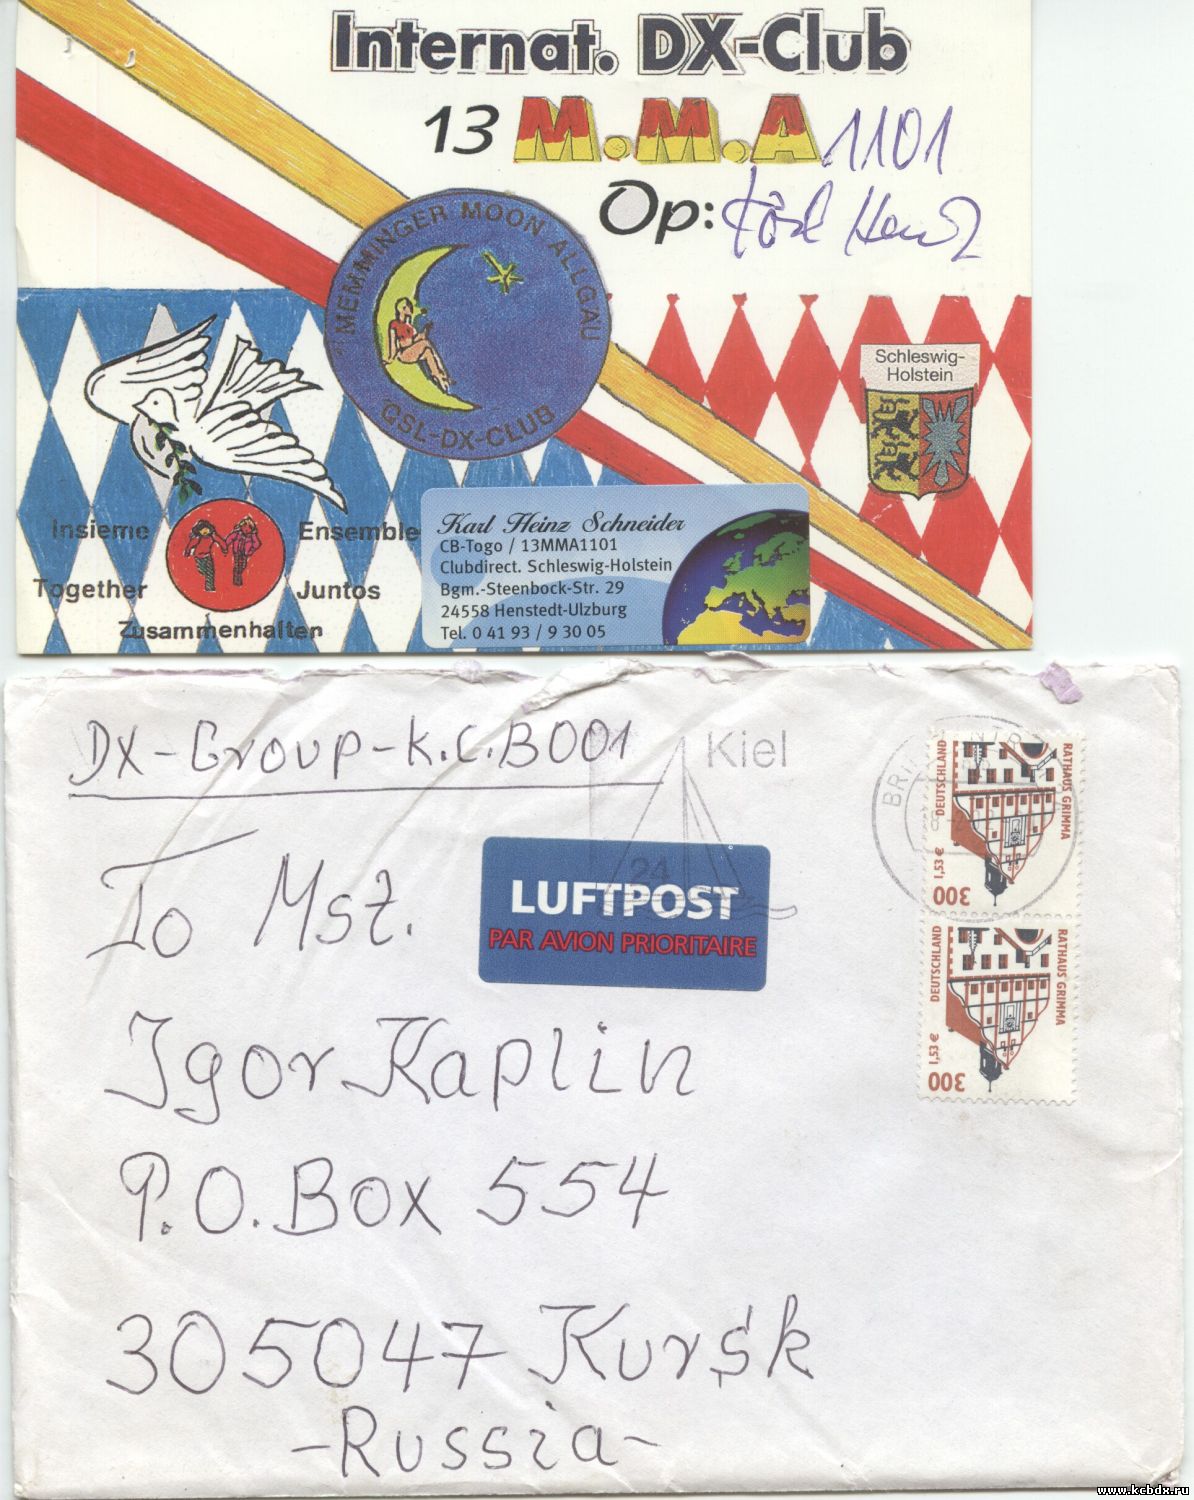 Internat. DX-Club
13 M.M.A 1101
Op: Karl Heinz
MEMMINGER MOON ALLGAU
GSL-DX-CLUB
Schleswig-
Holstein
Insieme
Ensemble
Together
Juntos
Zusammenhalten
Karl Heinz Schneider
CB-Togo / 13MMA1101
Clubdirect. Schleswig-Holstein
Bgm.-Steenbock-Str. 29
24558 Henstedt-Ulzburg
Tel. 0 41 93 / 9 30 05
DX-Group-K.C.B001
Kiel
24
DEUTSCHLAND
RATHAUS GRIMMA
1,53 €
300
LUFTPOST
PAR AVION PRIORITAIRE
DEUTSCHLAND
RATHAUS GRIMMA
1,53 €
300
To Mst.
Igor Kaplin
P.O. Box 554
305047 Kursk
-Russia-
www.kcbdx.ru